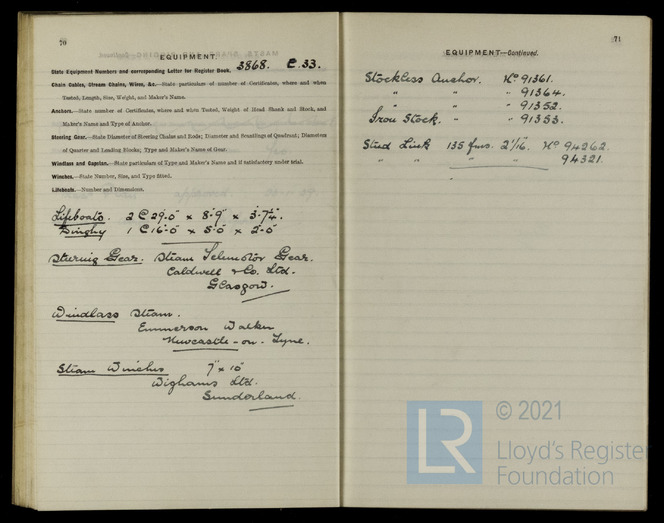 70
EQUIPMENT.
State Equipment Numbers and corresponding Letter for Register Book. 3868. C.33.
Chain Cables, Stream Chains, Wires, &c.—State particulars of number of Certificates, where and when
Tested, Length, Size, Weight, and Maker's Name.
Anchors.—State number of Certificates, where and when Tested, Weight of Head Shank and Stock, and
Maker's Name and Type of Anchor.
Steering Gear.—State Diameter of Steering Chains and Rods; Diameter and Scantlings of Quadrant; Diameters
of Quarter and Leading Blocks; Type and Maker's Name of Gear.
Windlass and Capstan.—State particulars of Type and Maker's Name and if satisfactory under trial.
Winches.—State Number, Size, and Type fitted.
Lifeboats.—Number and Dimensions.
Lifeboats. 2 @ 29.0" x 8'-9" x 3'-7¼".
Dinghy 1 @ 16'-0" x 5'-0" x 2'-0"
Steering Gear. Steam Telemotor Gear.
Caldwell & Co. Ltd.
Glasgow.
Windlass Steam.
Emmerson Walker
Newcastle-on-Tyne.
Steam Winches 7" x 10"
Wighams Ltd.
Sunderland.
71
EQUIPMENT—Continued.
Stockless Anchor. No 91361.
" " " 91364.
" " " 91352.
Iron Stock. " 91353.
Stud Link 135 fms. 2 1/16. No 94262.
" " " " 94321.
© 2021
LR
Lloyd's Register
Foundation